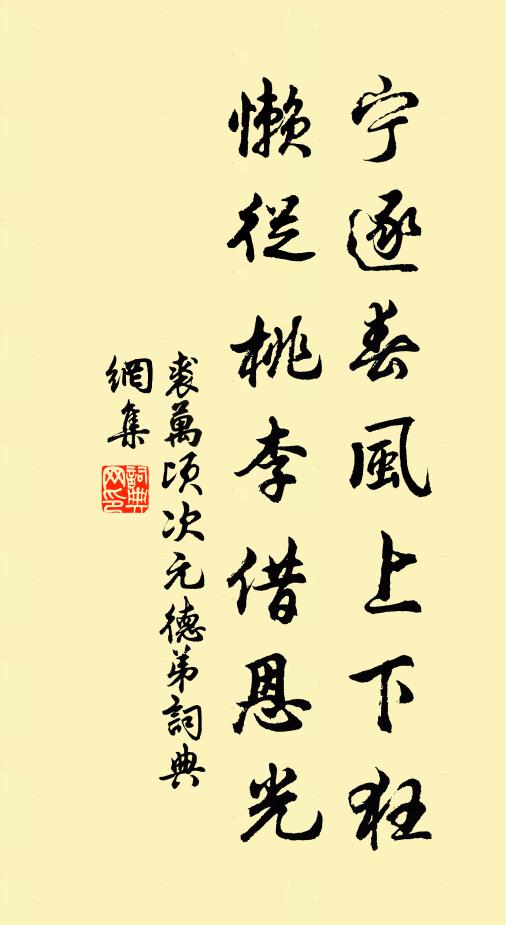 宁逐春風上下狂
懶從桃李借恩光
裘萬頃次元德弟詞典
網集
詞典
网印